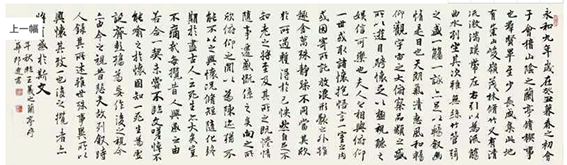 上一幅
永和九年歲在癸丑暮春之初會
于會稽山陰之蘭亭修禊事
也群賢畢至少長咸集此地
有崇山峻嶺茂林修竹又有清
流激湍映帶左右引以為流觴
曲水列坐其次雖無絲竹管弦
之盛一觴一詠亦足以暢敘幽
情是日也天朗氣清惠風和暢
仰觀宇宙之大俯察品類之盛
所以遊目騁懷足以極視聽之
娛信可樂也夫人之相與俯仰
一世或取諸懷抱悟言一室之內
或因寄所託放浪形骸之外雖
趣舍萬殊靜躁不同當其欣
於所遇暫得於己快然自足不
知老之將至及其所之既倦情
隨事遷感慨係之矣向之所
欣俯仰之間以為陳迹猶不
能不以之興懷況修短隨化終
期於盡古人云死生亦大矣豈
不痛哉每攬昔人興感之由
若合一契未嘗不臨文嗟悼不
能喻之於懷固知一死生為虛
誕齊彭殤為妄作後之視今
亦由今之視昔悲夫故列敘時
人錄其所述雖世殊事異所以
興懷其致一也後之攬者亦
將有感於斯文
王羲之蘭亭序